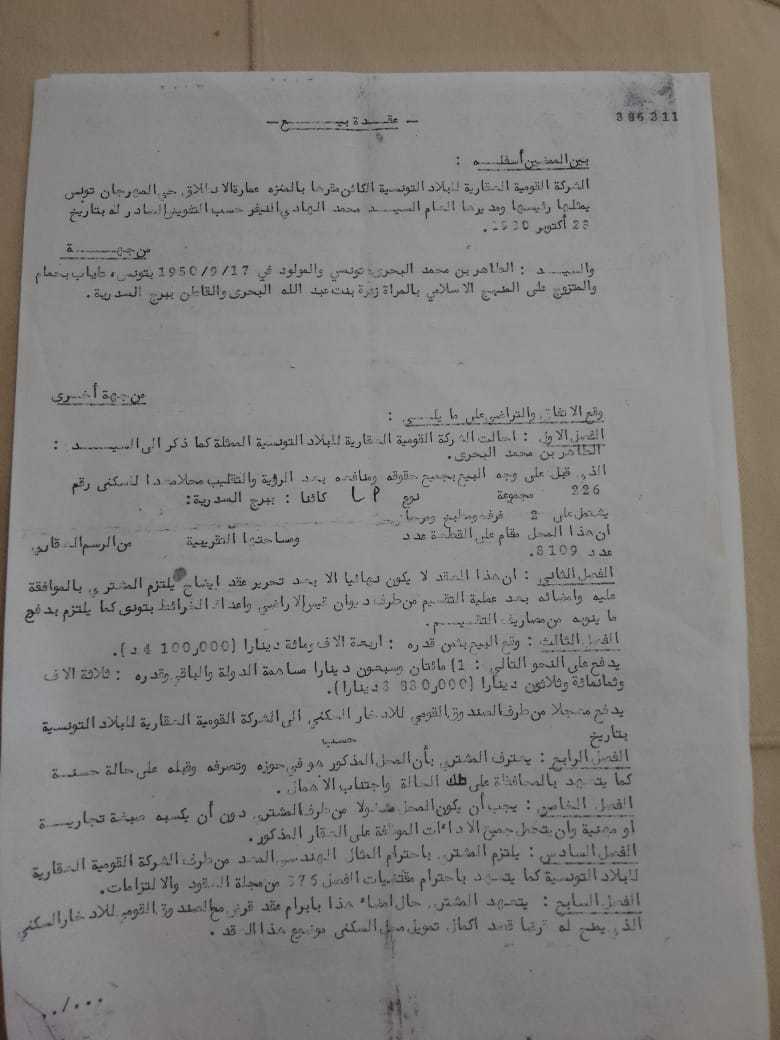 - عقـدة بيـــع -
386311
بين الممضين أسفلـه :
الشركة القومية العقارية للبلاد التونسية الكائن مقرها بالمنزه عمارة الاطلاق حي المهرجان تونس
يمثلها رئيسها ومديرها العام السيـد محمد الهادي حسب التفويض الصادر له بتاريخ
أكتوبر
من جهـــة
والسيـد : الطاهر بن محمد البحري تونسي والمولود في 1950/9/17 بتونس،
والمتزوج على المنهج الاسلامي بالمراة زهرة بنت عبد الله البحري والقاطن ببرج السدرية.
من جهة أخـرى
وقع الاتفاق والتراضي على ما يلـي :
الفصل الاول : احالت الشركة القومية العقارية للبلاد التونسية الممثلة كما ذكر الى السيـــد :
الطاهر بن محمد البحري.
الذي قبل على وجه البيع بجميع حقوقه ومنافعه بعد الرؤية والتقليب محلا معدا للسكنى رقم
226 مجموعة نوع كائنا : ببرج السدرية:
يشتمل على 2 غرف ومطبخ ومرحاض
ان هذا المحل مقام على القطعة عدد ومساحتها التقريبية من الرسم العقاري
عدد 8109.
الفصل الثاني : ان هذا العقد لا يكون نهائيا الا بعد تحرير عقد ايضاح يلتزم المشتري بالموافقة
عليه وامضائه بعد عملية التقسيم من طرف ديوان قيس الاراضي واعداد الخرائط بتونس كما يلتزم بدفع
ما ينوبه من مصاريف التقسيـم.
الفصل الثالث : وقع البيع بثمن قدره : اربعة الاف ومائة دينارا (4 100,000 د).
يدفع على النحو التالي : 1) مائتان وسبعون دينارا مساهمة الدولة والباقي وقدره : ثلاثة الاف
وثمانمائة وثلاثون دينارا (3 830,000 دينارا).
يدفع معجلا من طرف الصندوق القومي للادخار السكني الى الشركة القومية العقارية للبلاد التونسية
بتاريخ حسب
الفصل الرابع : يعترف المشتري بأن المحل المذكور هو في حوزه وتصرفه وقبله على حالة حسنـة
كما يتعهـد بالمحافظة على تلك الحالة واجتناب الاهمال.
الفصل الخامس : يجب أن يكون المحل مشغولا من طرف المشتري دون أن يكسبه صبغة تجاريـة
او مهنية وان يتحمل جميع الاداءات الموظفة على العقار المذكور.
الفصل السادس : يلتزم المشتري باحترام المثال الهندسي المعد من طرف الشركة القومية العقارية
للبلاد التونسية كما يتعهـد باحترام مقتضيات الفصل من مجلة العقود والالتزامات.
الفصل السابع : يتعهـد المشتري حال امضاء هذا بابرام عقد قرض مع الصندوق القومي للادخار السكني
الذي يمنح له قرضا قصد اكمال تمويل محل السكنى موضوع هذا العقد .
../...